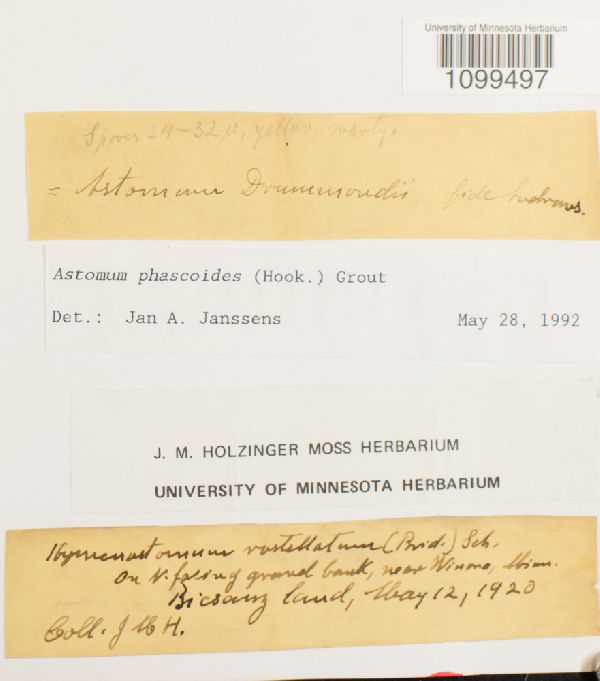 University of Minnesota Herbarium
1099497
Spores 24-32 µ, yellow, warty.
= Astomum Drummondii, fide Andrews.
Astomum phascoides (Hook.) Grout
Det.: Jan A. Janssens May 28, 1992
J. M. HOLZINGER MOSS HERBARIUM
UNIVERSITY OF MINNESOTA HERBARIUM
Hymenostomum rostellatum (Brid.) Sch.
On N. facing ground bank, near Winona, Minn.
Biesanz land, May 12, 1920
Coll. J M H.